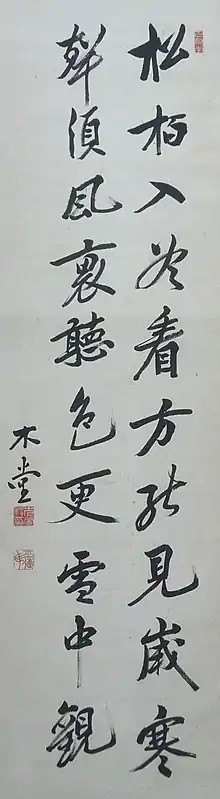 松栢入冬看方能見歳寒
聲須風裏聽色更雪中観
木堂